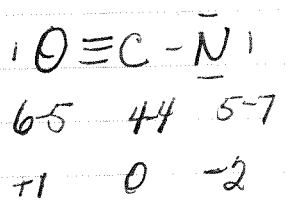 |O≡C-N̲̅|
6-5 4-4 5-7
+1 0 -2